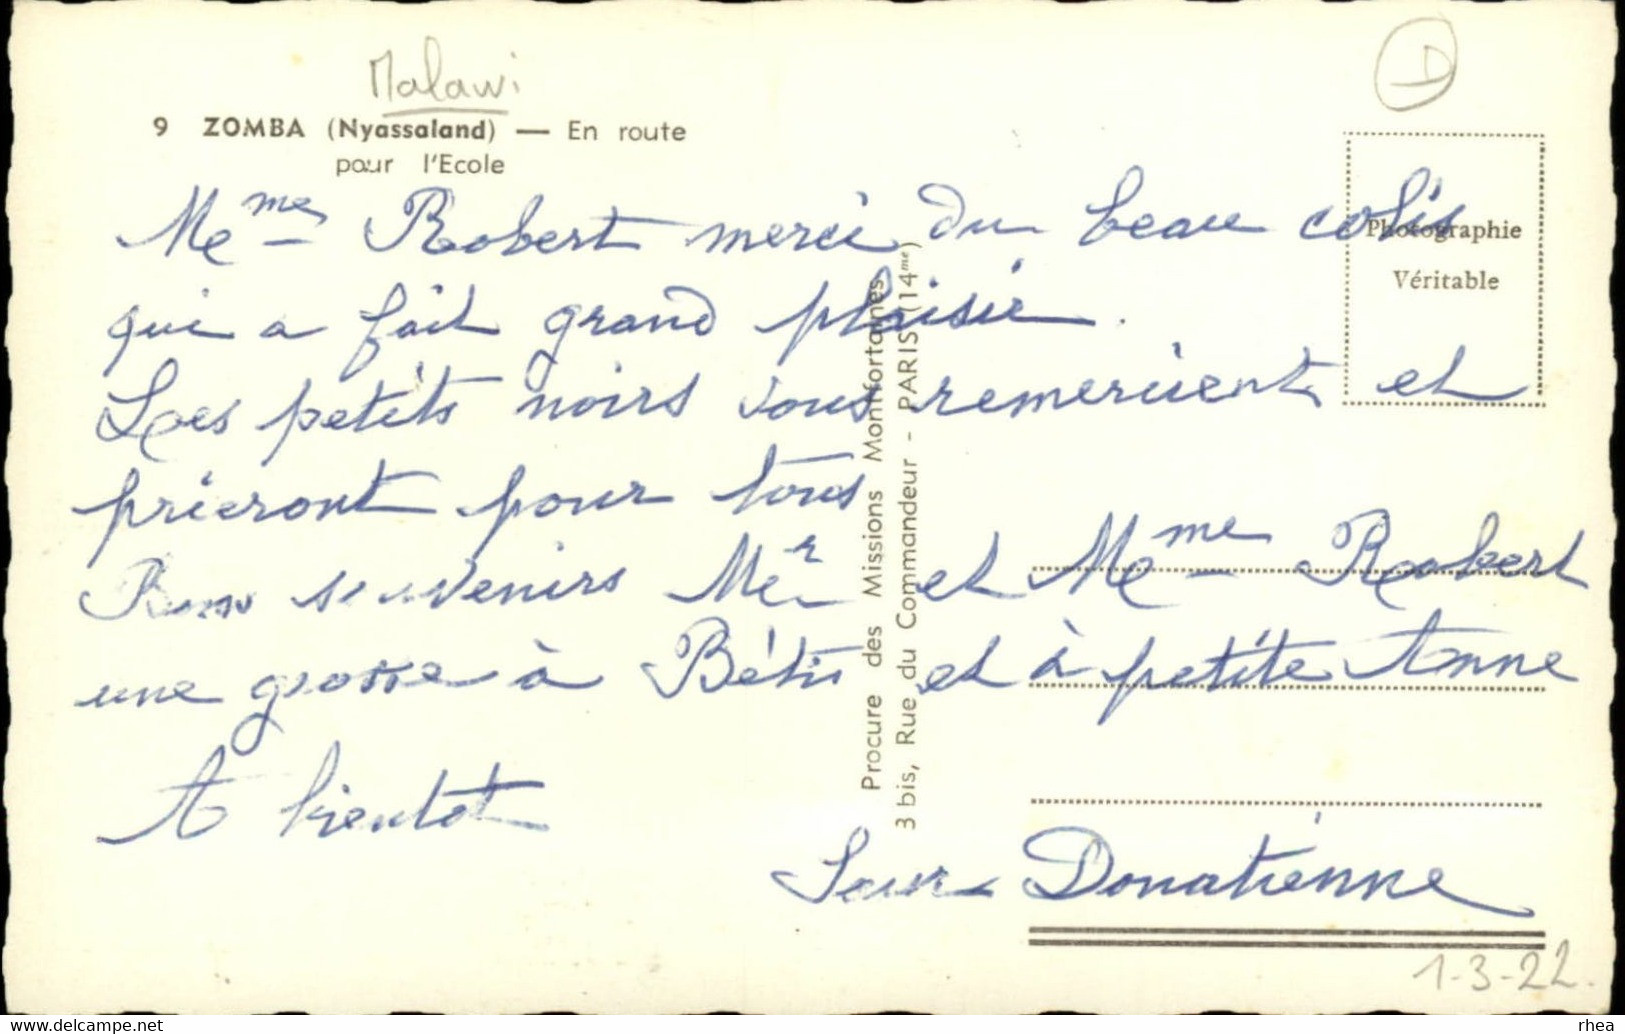 Malawi
D
9 ZOMBA (Nyassaland) — En route
pour l'Ecole
Photographie
Véritable
Mme Robert merci du beau colis
qui a fait grand plaisir.
Les petits noirs vous remercient et
prieront pour tous
Bons souvenirs Mr et Mme Robert
une grosse à et à petite Anne
A bientot
Sœur Donatienne
Procure des Missions Montfortaines
3 bis, Rue du Commandeur - PARIS (14me)
1-3-22.
www.delcampe.net
rhea